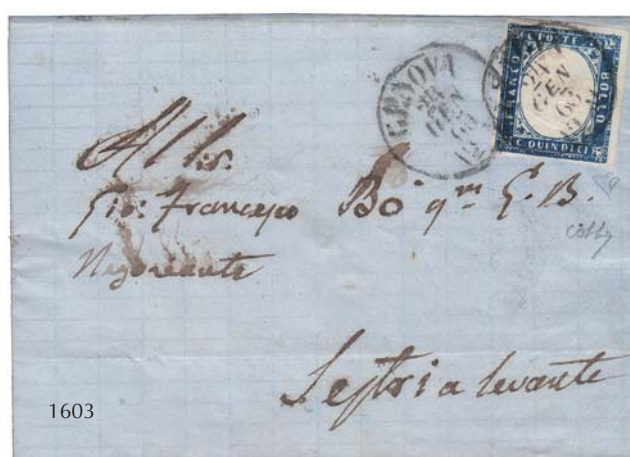 GENOVA
GEN
63
FRANCO
C. POSTE
BOLLO
C. QUINDICI
GEN
63
All Sig.
Gio: Francesco Bò qm G. B.
Negoziante
Sestri a levante
1603